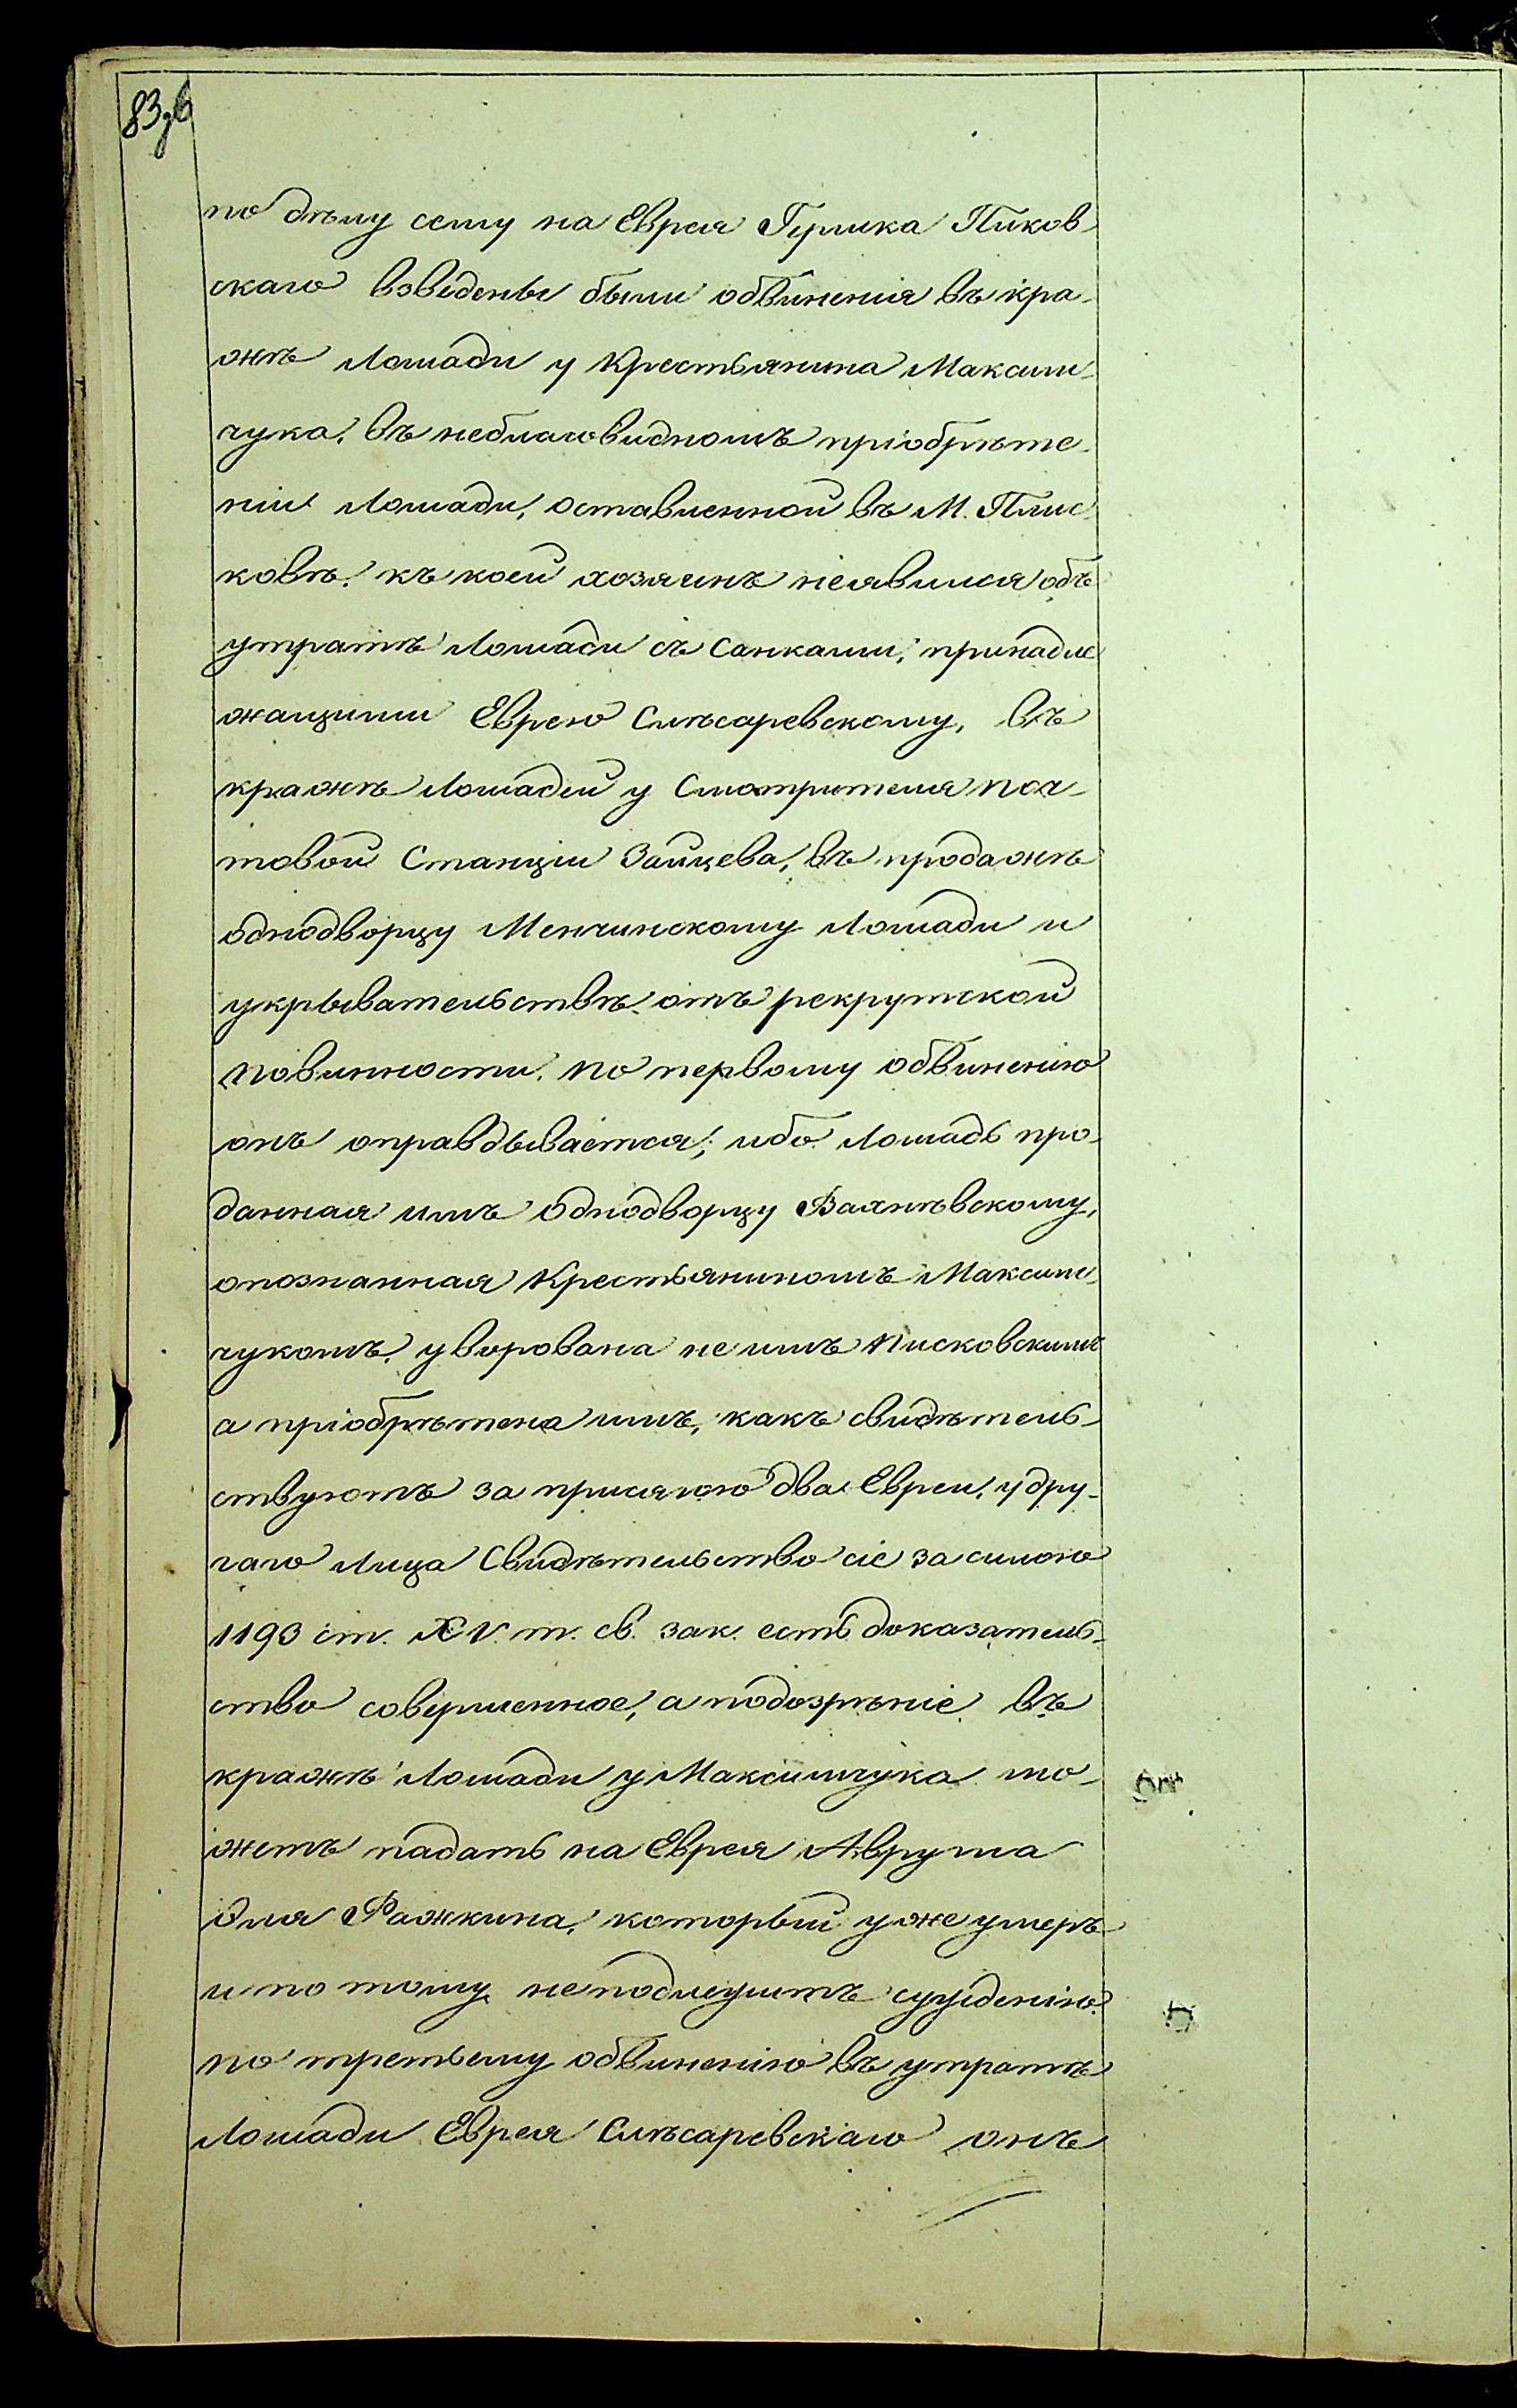 по дѣлу сему на Еврея ГершкаПисков-
скаго взведены были обвиненія въ кра-
жѣ Лошади у Крестьянина Максим-
чука, въ неблаговидномъ пріобрѣте-
ніи Лошади, оставленной въ М. Плис-
ковѣ, къ коей хозяинъ неявился, объ
утратѣ Лошади съ Санками, принадле
жащими Еврею Слѣсаревскому, въ
кражѣ Лошадей у Смотрителя поч-
товой Станціи Зайцева, въ продажѣ
однодворцу Менчинскому Лошади и
укрывательствѣ отъ рекрутской
повинности. По первому обвиненію
онъ оправдывается; ибо Лошадь про-
данная имъ Однодворцу Вахнѣвскому,
опознанная Крестьяниномъ Максим-
чукомъ, уворована не имъ Писковскимъ
а пріобрѣтена имъ, какъ свидѣтель-
ствуютъ за присягою два Еврея, у дру-
гаго Лица Свидѣтельство сіе за силою
1193 ст. XV. т. св. зак. есть доказатель-
ство совершенное, а подозрѣніе въ
кражѣ Лошади у Максимчука мо-
жетъ падать на Еврея Аврума
Фажкина, который уже умеръ
и по тому неподлежитъ сужденію.
по третьему обвиненію въ утратѣ
Лошади Еврея Слѣсаревскаго онъ